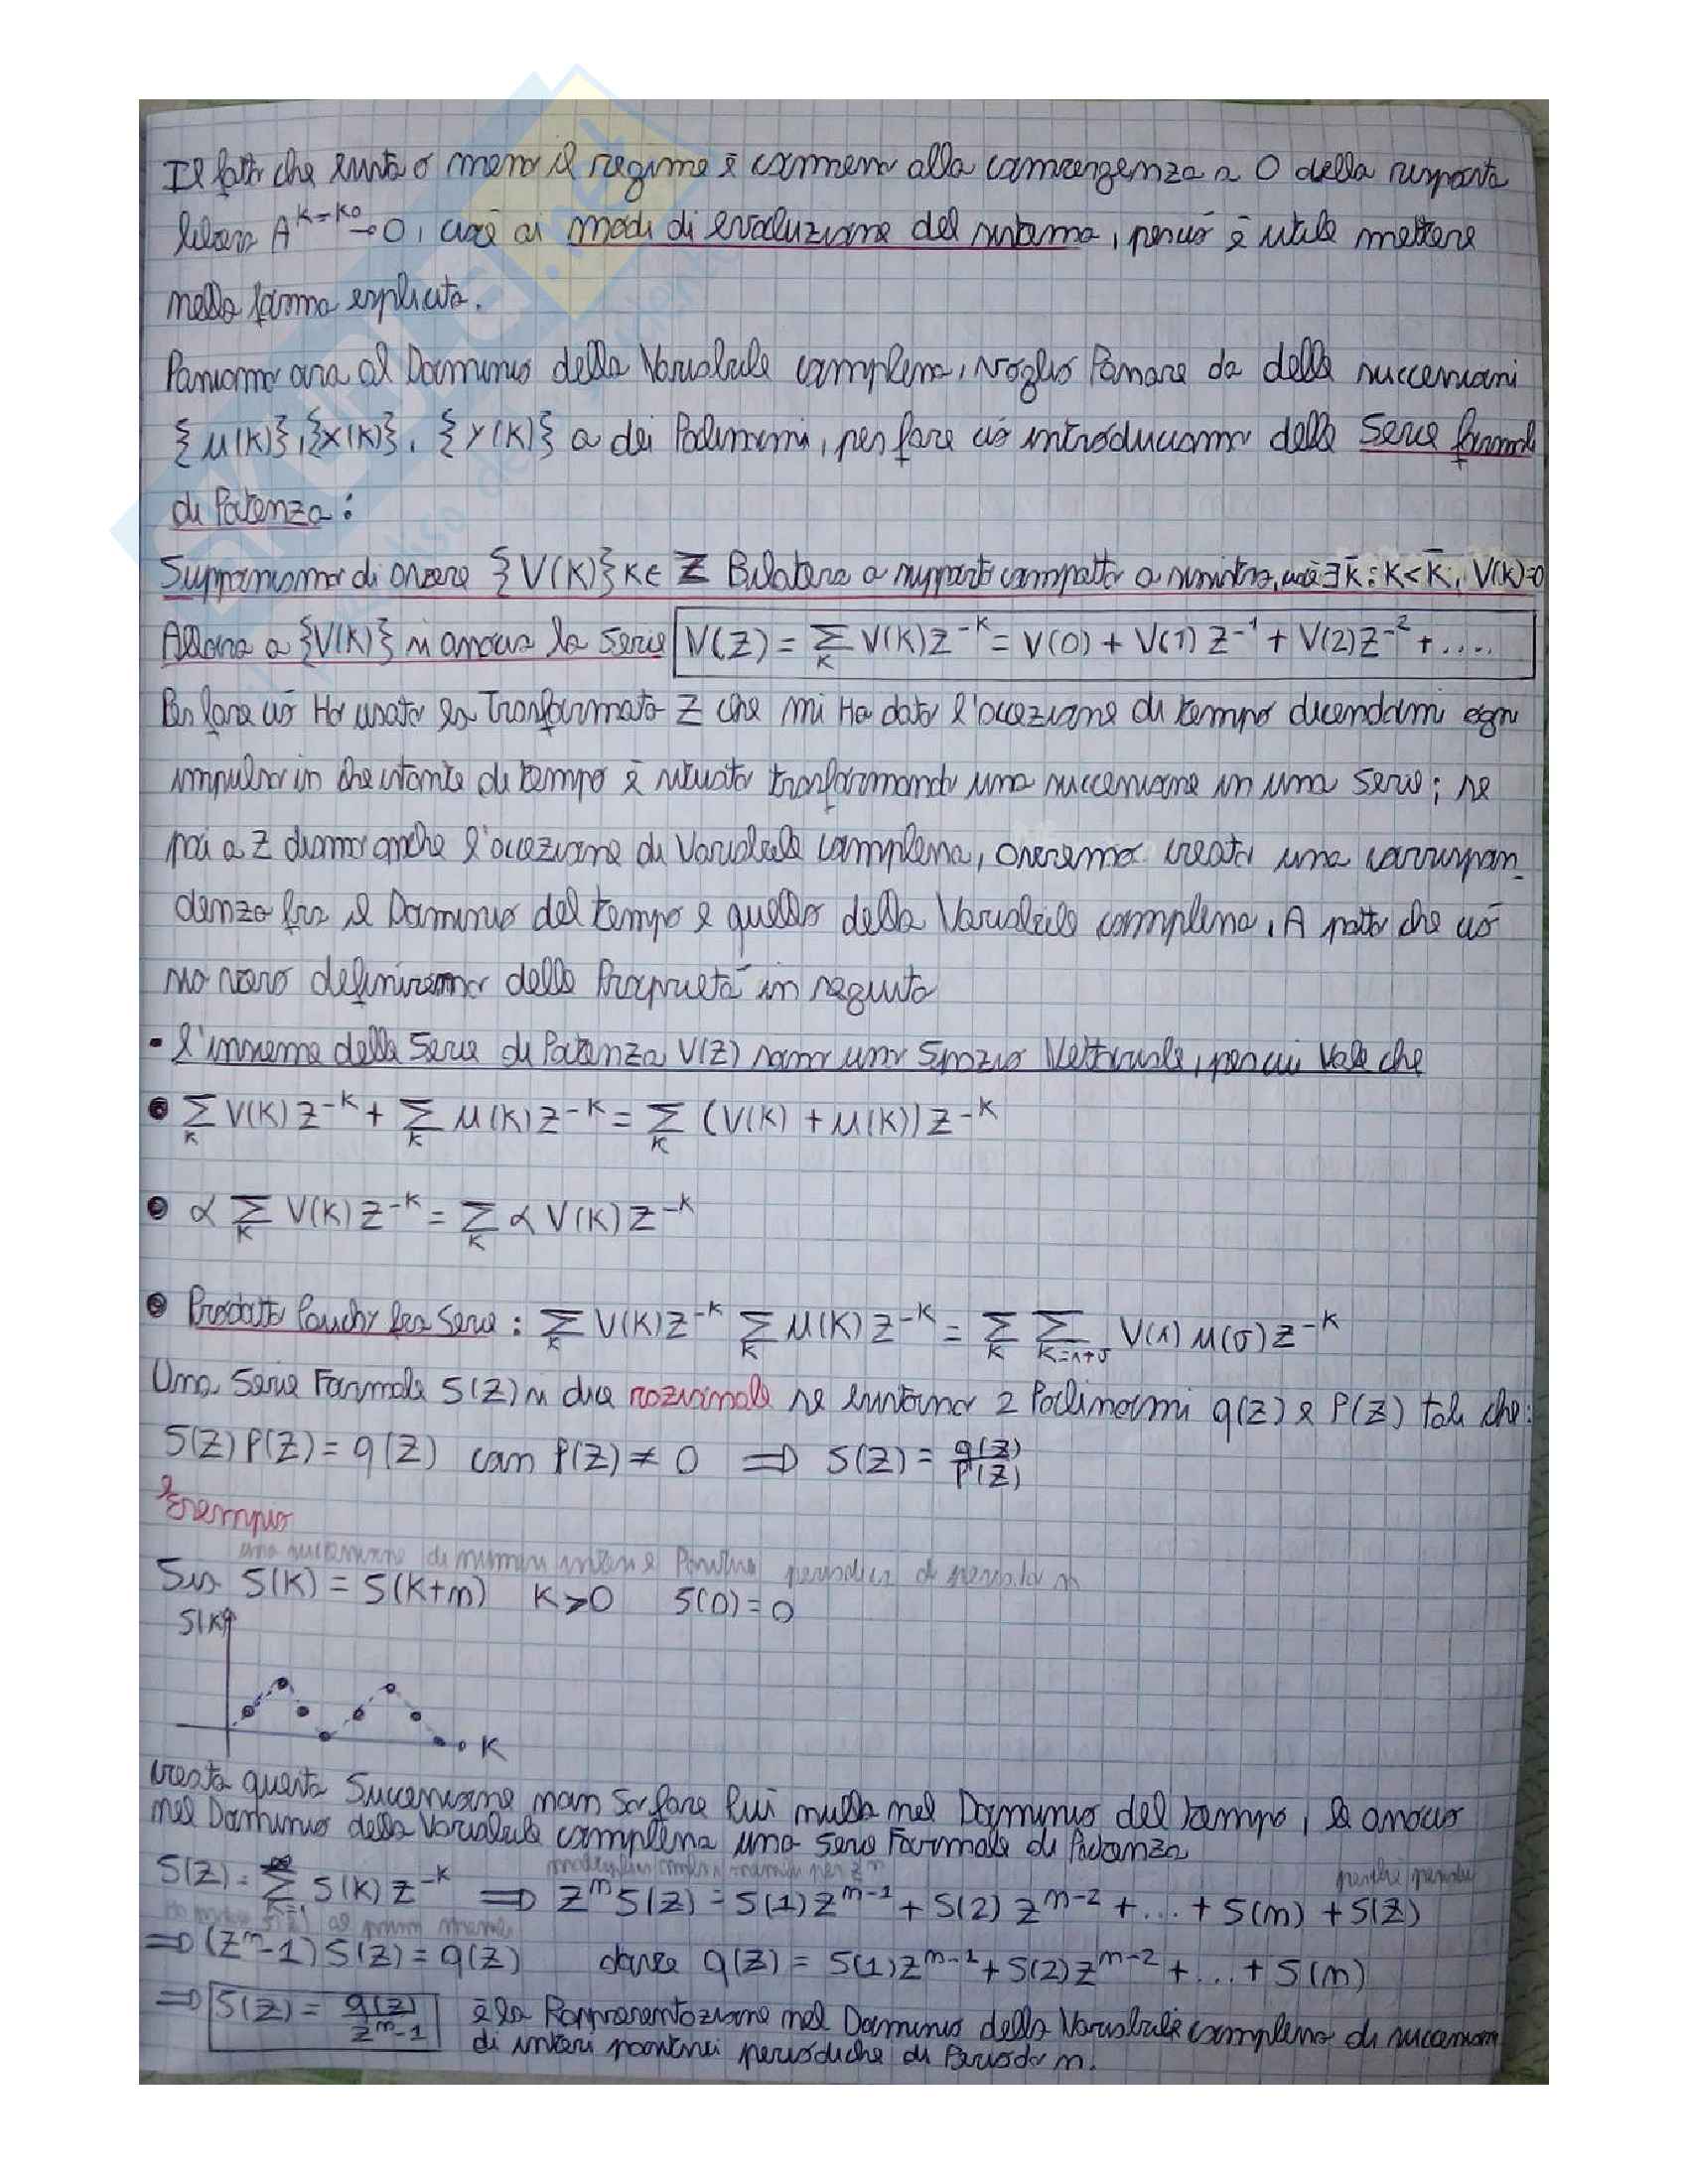 Il fatto che esista o meno il regime è connesso alla convergenza a 0 della risposta
libera A^{K-K0} → 0, cioè ai modi di evoluzione del sistema, perciò è utile mettere
nella forma esplicita.
Passiamo ora al Dominio della Variabile complessa, voglio Passare da delle successioni
{u(K)}, {x(K)}, {y(K)} a dei Polinomi, per fare ciò introduciamo delle Serie formali
di Potenza:
Supponiamo di avere {V(K)} K∈Z Bilatera a supporto compatto a sinistra, cioè ∃ K̄ : K<K̄, V(K)=0
Allora a {V(K)} si associa la serie V(Z) = Σ_K V(K)Z^{-K} = V(0) + V(1)Z^{-1} + V(2)Z^{-2} + ....
Per fare ciò Ho usato la Trasformata Z che mi Ha dato l'accezione di tempo dicendomi ogni
impulso in che istante di tempo è situato trasformando una successione in una serie; se
poi a Z diamo anche l'accezione di Variabile complessa, avremo creato una corrispon_
denza fra il Dominio del tempo e quello della Variabile complessa. A patto che ciò
sia vero definiremo delle Proprietà in seguito
- l'insieme delle Serie di Potenza V(Z) sono uno Spazio Vettoriale, per cui Vale che
• Σ_K V(K)Z^{-K} + Σ_K u(K)Z^{-K} = Σ_K (V(K) + u(K))Z^{-K}
• α Σ_K V(K)Z^{-K} = Σ_K α V(K)Z^{-K}
• Prodotto Cauchy fra Serie: Σ_K V(K)Z^{-K} Σ_K u(K)Z^{-K} = Σ_K Σ_{K=s+σ} V(s)u(σ)Z^{-K}
Una Serie Formale S(Z) si dice razionale se esistono 2 Polinomi q(Z) e P(Z) tali che:
S(Z)P(Z) = q(Z) con P(Z) ≠ 0 ⇒ S(Z) = q(Z)/P(Z)
Esempio
una successione di numeri interi e Positivi periodica di periodo n
Sia S(K) = S(K+n) K>0 S(0)=0
S(K)
K
creata questa Successione non So fare lui nulla nel Dominio del tempo, le associo
nel Dominio della Variabile complessa una Serie Formale di Potenza
moltiplico per Z^n perché periodica
S(Z) = Σ_{K=1}^{∞} S(K)Z^{-K} ⇒ Z^n S(Z) = S(1)Z^{n-1} + S(2)Z^{n-2} + ... + S(n) + S(Z)
S(Z) al primo membro
⇒ (Z^n-1)S(Z) = q(Z) dove q(Z) = S(1)Z^{n-1} + S(2)Z^{n-2} + ... + S(n)
⇒ S(Z) = q(Z)/(Z^n-1) è la Rappresentazione nel Dominio della Variabile complessa di successioni
di interi positivi periodiche di Periodo n.